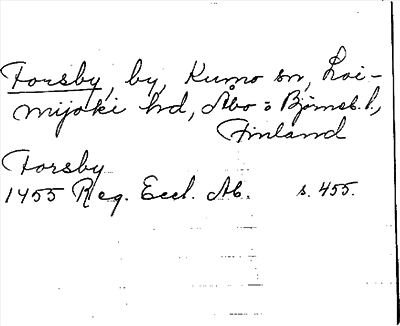 Forsby, by, Kumo sn, Loi-
mijoki hd, Åbo o Björneb. l.,
Finland
Forsby
1455 Reg. Eccl. Ab. s. 455.